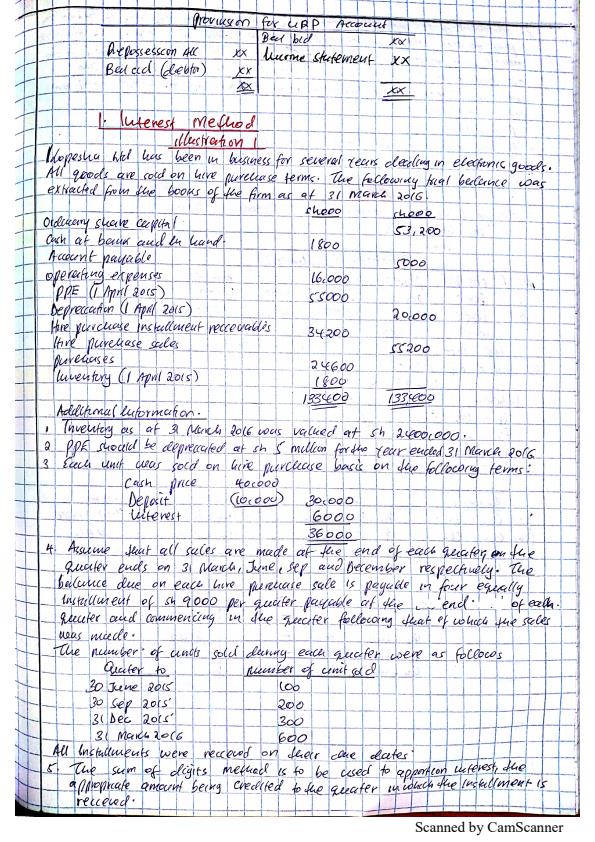 Provision for URP Account
Bad bid xx
Repossession A/c xx Income statement xx
Bad aid (debtor) xx
xx xx
1. Interest Method
illustration 1
Kopesha Ltd has been in business for several Years dealing in electronic goods.
All goods are sold on hire purchase terms. The following trial balance was
extracted from the books of the firm as at 31 March 2016.
sh000 sh000
Ordinary share capital 53,200
Cash at bank and in hand. 1800
Account payable 5000
Operating expenses 16,000
PPE (1 April 2015) 55000
Depreciation (1 April 2015) 20,000
Hire purchase installment receivables 34200
Hire purchase sales 55200
purchases 24600
Inventory (1 April 2015) 1800
133400 133400
Additional Information.
1 Inventory as at 31 March 2016 was valued at sh 2400,000.
2 PPE should be depreciated at sh 5 million for the Year ended 31 March 2016
3 Each unit was sold on hire purchase basis on the following terms:
Cash price 40,000
Deposit (10,000) 30,000
Interest 6000
36000
4. Assume that all sales are made at the end of each quater on the
quater ends on 31 March, June, Sep and December respectively. The
balance due on each hire purchase sale is payable in four equally
installment of sh 9000 per quater payable at the end of each
quater and commencing in the quater following that of which the sales
was made.
The number of units sold during each quater were as follows
Quater to number of unit sold
30 June 2015 100
30 Sep 2015 200
31 Dec 2015 300
31 March 2016 600
All Installments were received on their due dates
5. The sum of digits method is to be used to apportion interest, the
appropriate amount being credited to the quater in which the installment is
received.
Scanned by CamScanner